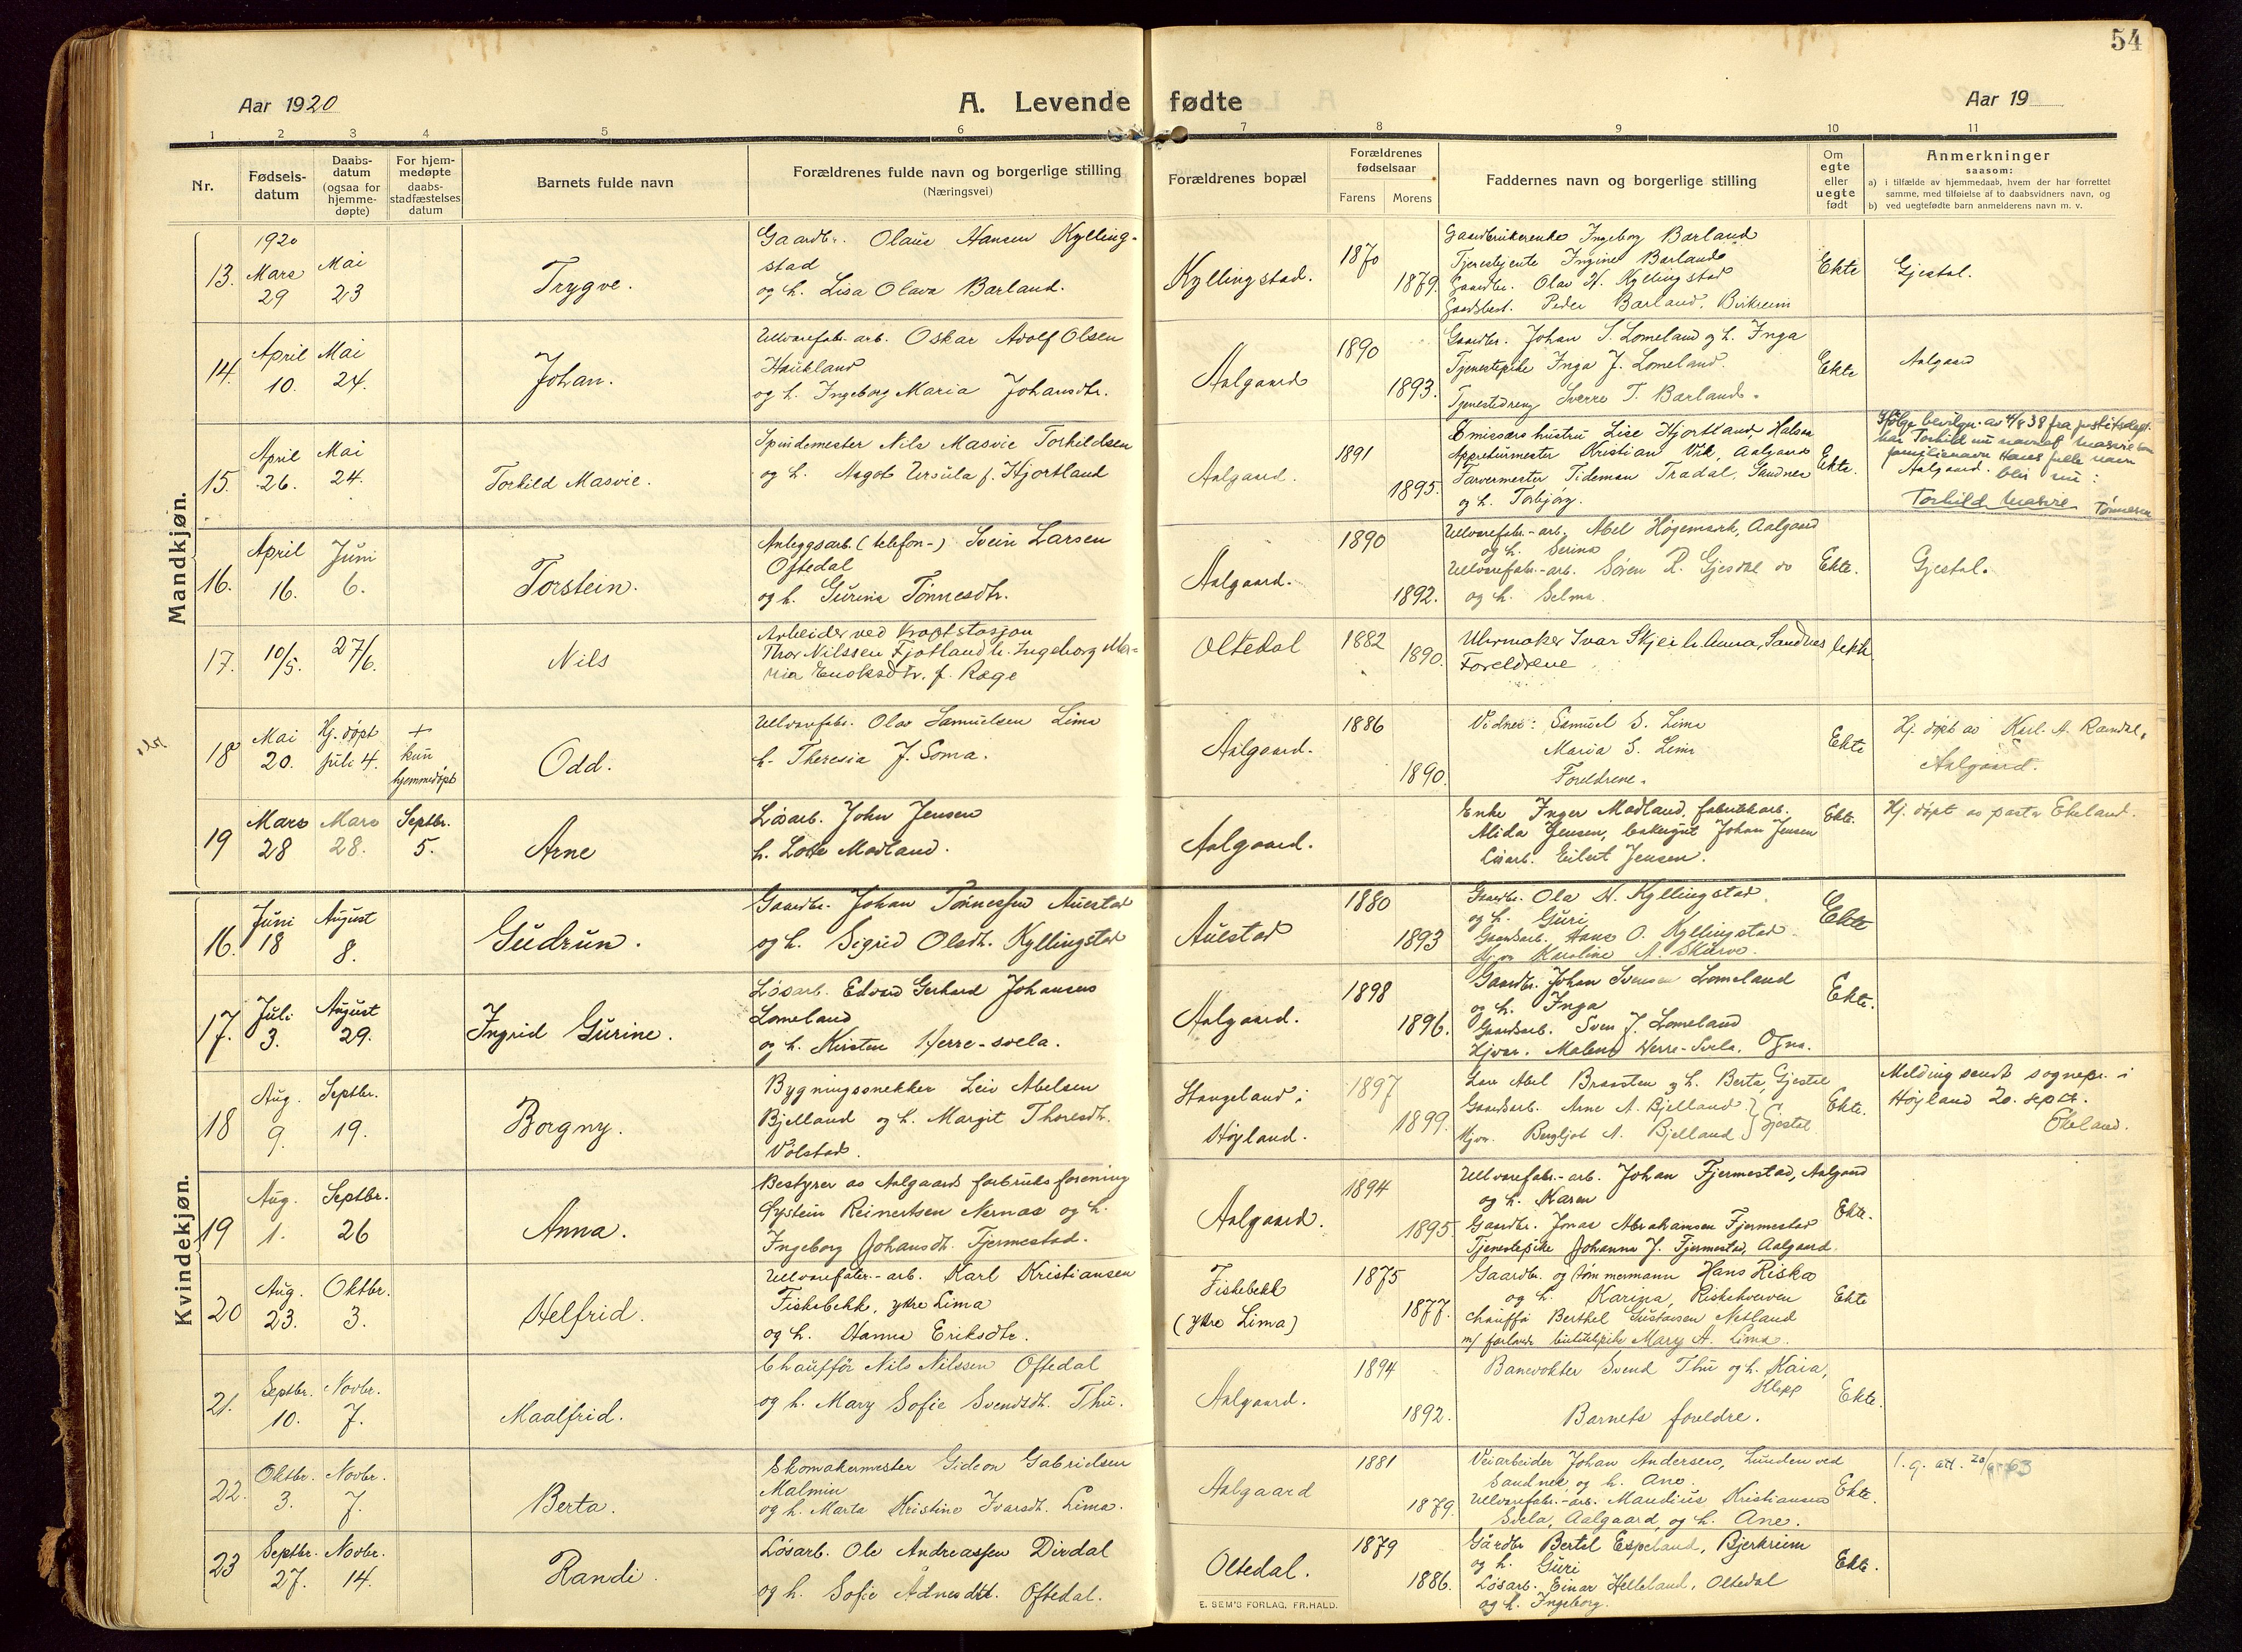 54
Aar 1920
A. Levende fødte
Aar 19
1 2 3 4 5 6 7 8 9 10 11
Nr.
Fødsels-
datum
Daabs-
datum
(ogsaa for
hjemme-
døpte)
For hjem-
medøpte
daabs-
stadfæstelses
datum
Barnets fulde navn
Forældrenes fulde navn og borgerlige stilling
(Næringsvei)
Forældrenes bopæl
Forældrenes
fødselsaar
Farens Morens
Faddernes navn og borgerlige stilling
Om
egte
eller
uegte
født
Anmerkninger
saasom:
a) i tilfælde av hjemmedaab, hvem der har forrettet
samme, med tilføielse af to daabsvidners navn, og
b) ved uegtefødte barn anmelderens navn m. v.
Mandkjøn.
1920
13. Mars 29 Mai 23
Trygve.
Gaardbr. Olaus Hansen Kylling-
stad
og h. Lisa Olava Barland.
Kyllingstad.
1870
1879.
Gaardbrukerenke Ingeborg Barland
Tjenestjente Ingine Barland
Gaardbr. Olav H. Kyllingstad
Gaardsbest. Peder Barland, Birkreim
Ekte
Gjestal.
14. April 10. Mai 24.
Johan.
Ullvarefabr. arb. Oskar Adolf Olsen
Haukland
og h. Ingeborg Maria Johansdtr.
Aalgaard
1890
1893.
Gaardbr. Johan S. Lomeland og h. Inga
Tjenestepike Inga J. Lomeland.
Tjenestedreng Sverre T. Barland.
Ekte
Aalgaard
15. April 26. Mai 24.
Torkild Masvie.
Spindemester Nils Masvie Torkildsen
og h. Aagot Ursula f. Hjortland
Aalgaard.
1891
1895.
Emissærs hustru Lise Hjortland, Halsen
Appreturmester Kristian Vik, Aalgaard
Farvermester Tideman Tradal, Sandnes
og h. Torbjørg.
Ekte.
Ifølge bevilgn. av 4/8 38 fra justitsdept.
har Torkild nu navnet Masvie som
familienavn Hans fulle navn
Aalgaard. blir nu:
Torkild Masvie Tønnesen
16. April 16. Juni 6.
Torstein.
Anleggsarb. (telefon-) Svein Larsen
Oftedal
og h. Gurina Tønnesdtr.
Aalgaard.
1890
1892.
Ullvarefabr.-arb. Abel Høgemark, Aalgaard
og h. Serina
Ullvarefabr.-arb. Søren R. Gjesdal do
og h. Selma.
Ekte.
Gjestal.
17. 10/5. 27/6.
Nils
Arbeider ved Kraftstasjon
Thor Nilssen Fjotland h. Ingeborg Ma-
ria Enoksdtr. f. Rage
Oltedal
1882
1890.
Uhrmaker Ivar Skjei h. Anna, Sandnes
Foreldrene
ekte
18 Mai 20. Hj. døpt juli 4. + kun hjemmedøpt
Odd.
Ullvarefabr. Olav Samuelsen Lima
h. Theresia J. Soma.
Aalgaard.
1886
1890.
Vidner: Samuel S. Lima
Maria S. Lima
Foreldrene.
Ekte
Hj. døpt av Karl. A. Ramdal,
Aalgaard.
19 Mars 28 Mars 28. Septbr. 5.
Arne
Løsarb. John Jensen
h. Lotte Madland.
Aalgaard.
Enke Inger Madland, fabrikkarb.
Alida Jensen, bakergut Johan Jensen
Løsarb. Eilert Jensen.
Ekte.
Hj. døpt av pastor Ekeland.
Kvindekjøn.
16. Juni 18 August 8.
Gudrun.
Gaardbr. Johan Tønnessen Auestad
og h. Sigrid Olsdtr. Kyllingstad
Auestad
1880
1893
Gaardbr. Ola H. Kyllingstad.
og h. Guri
Gaardsarb. Hans O. Kyllingstad.
Hjv. Karoline A. Skurve.
Ekte
17. Juli 3. August 29.
Ingrid Gurine.
Løsarb. Edvard Gerhard Johansen
Lomeland
og h. Kirsten Herre-svela.
Aalgaard.
1898
1896.
Gaardbr. Johan Svensen Lomeland
og h. Inga
Gaardsarb. Sven J. Lomeland
Hjvær. Malene Herre-Svela. Ogna.
Ekte.
18 Aug. 9. Septbr. 19.
Borgny.
Bygningssnekker Leiv Abelsen
Bjelland og h. Margit Thoresdtr.
Vølstad.
Stangeland i
Høyland.
1897
1899.
Lær. Abel Braasten og h. Berta Gjestal
Gaardsarb. Arne A. Bjelland
Hjvr. Bergljot A. Bjelland } Gjestal
Ekte.
Melding sendt sognepr. i
Høyland 20. sept.
Ekeland.
19 Aug. 1. Septbr. 26
Anna.
Bestyrer av Aalgaards forbruksforening
Øystein Reinertsen Nernæs og h.
Ingeborg Johansdtr. Fjermestad.
Aalgaard.
1894
1895
Ullvarefabr.-arb. Johan Fjermestad, Aalgaard
og h. Karen
Gaardbr. Jonas Abrahamsen Fjermestad
Tjenestepike Johanna J. Fjermestad, Aalgaard.
Ekte.
20 Aug. 23. Oktbr. 3.
Helfrid.
Ullvarefabr.-arb. Karl Kristiansen
Fiskebekk, ytre Lima
og h. Hanna Eriksdtr.
Fiskebekk
(ytre Lima)
1875
1877.
Gaardbr. og tømmermann Hans Riska
og h. Karina, Riskekverven
Chauffør Berthel Gustavsen Netland
m/ forlovede butikkpike Mary A. Lima.
Ekte
21. Septbr. 10. Novbr. 7.
Maalfrid.
Chauffør Nils Nilssen Oftedal
og h. Mary Sofie Svendsdtr. Thu.
Aalgaard.
1894
1892.
Banevokter Svend Thu og h. Kaia,
Klepp
Barnets foreldre.
Ekte.
22. Oktbr. 3. Novbr. 7.
Berta.
Skomakermester Gideon Gabrielsen
Malmin
og h. Marta Kristine Ivarsdtr. Lima.
Aalgaard
1881
1879.
Veiarbeider Johan Andersen, Lunden ved
Sandnes, og h. Ane.
Ullvarefabr.-arb. Mandius Kristiansen
Svela, Aalgaard, og h. Ane.
Ekte.
23 Septbr. 27. Novbr. 14.
Randi.
Løsarb. Ole Andreassen Dirdal
og h. Sofie Ådnesdtr. Oftedal.
Oltedal.
1879
1886.
Gårdbr. Bertel Espeland, Bjerkreim
og h. Guri
Løsarb. Einar Helleland, Oltedal
og h. Ingeborg.
Ekte.
E. SEM'S FORLAG, FR.HALD.